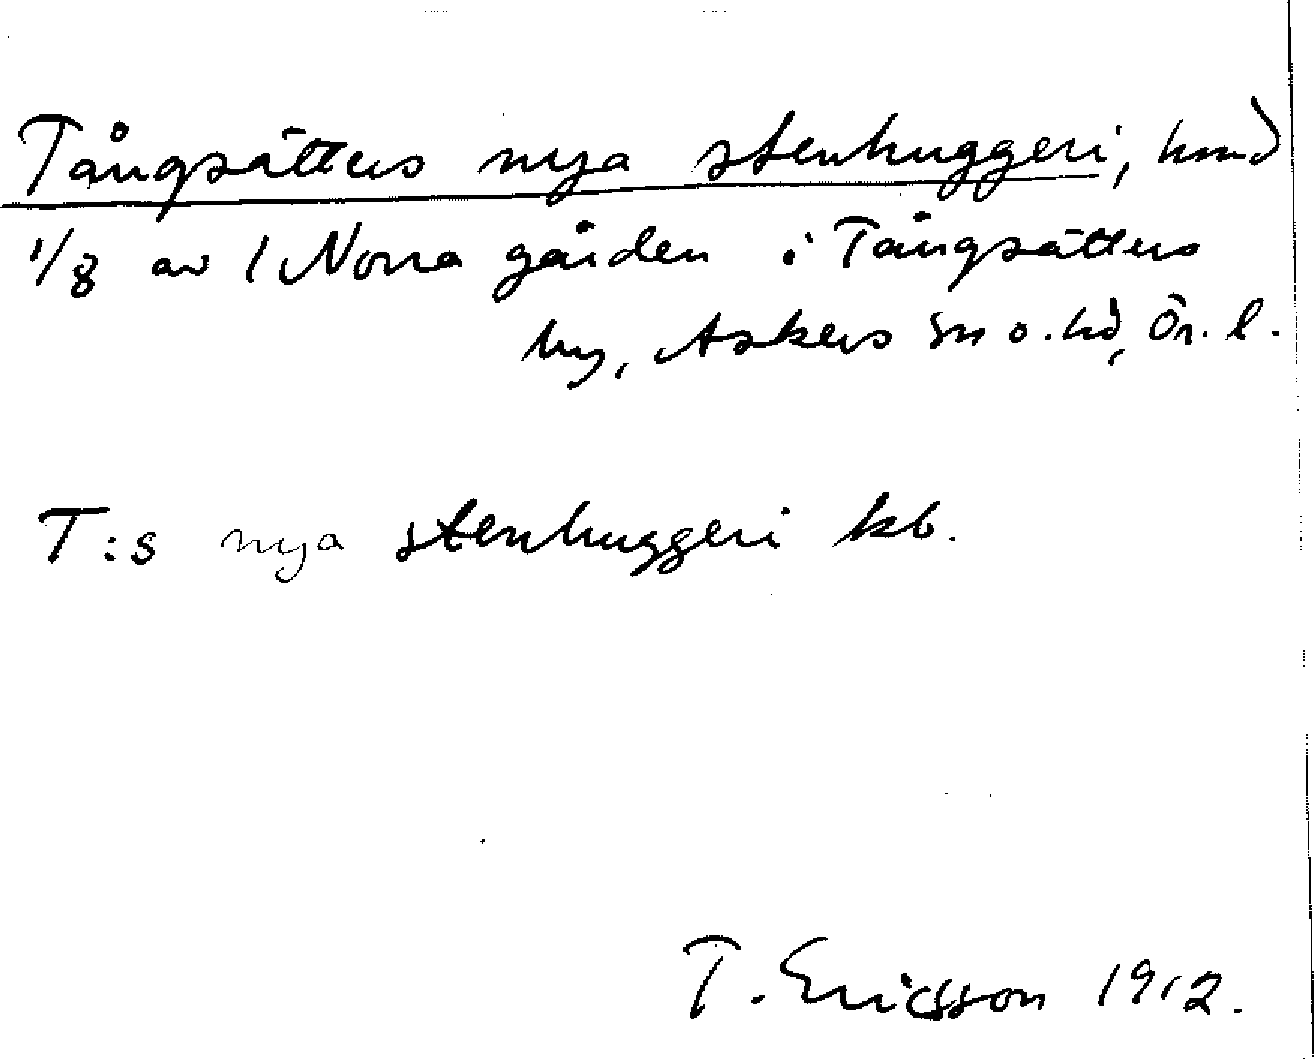 Tångsätters nya stenhuggeri, hmd
1/8 av 1 Norra gården i Tångsätters
by, Askers sn o. hd, Ör. l.
T:s nya stenhuggeri kb.
T. Ericsson 1912.